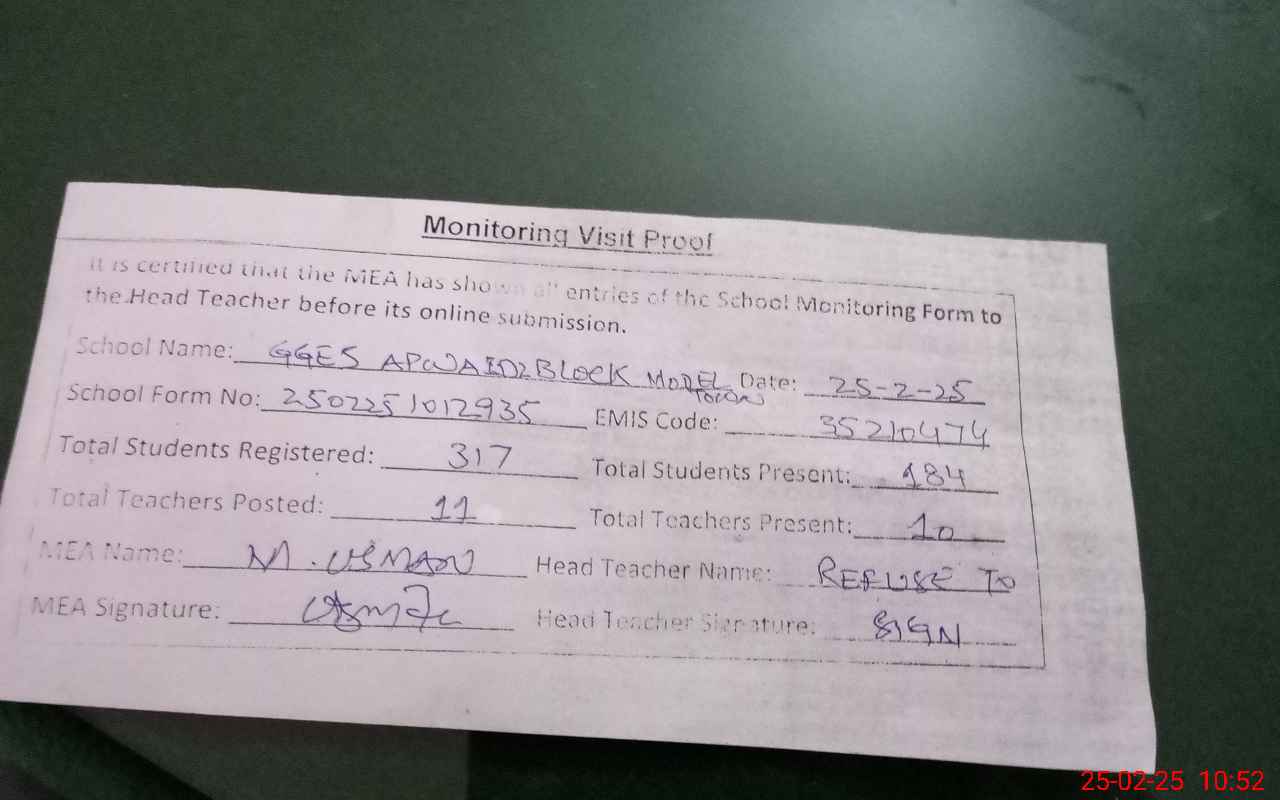 Monitoring Visit Proof
It is certified that the MEA has shown all entries of the School Monitoring Form to
the Head Teacher before its online submission.
School Name: GGES APWA D2 BLOCK MODEL TOWN Date: 25-2-25
School Form No: 2502251012935 EMIS Code: 35210474
Total Students Registered: 317 Total Students Present: 184
Total Teachers Posted: 11 Total Teachers Present: 10
MEA Name: M. USMAN Head Teacher Name: REFUSE TO
MEA Signature: Head Teacher Signature: SIGN
25-02-25 10:52